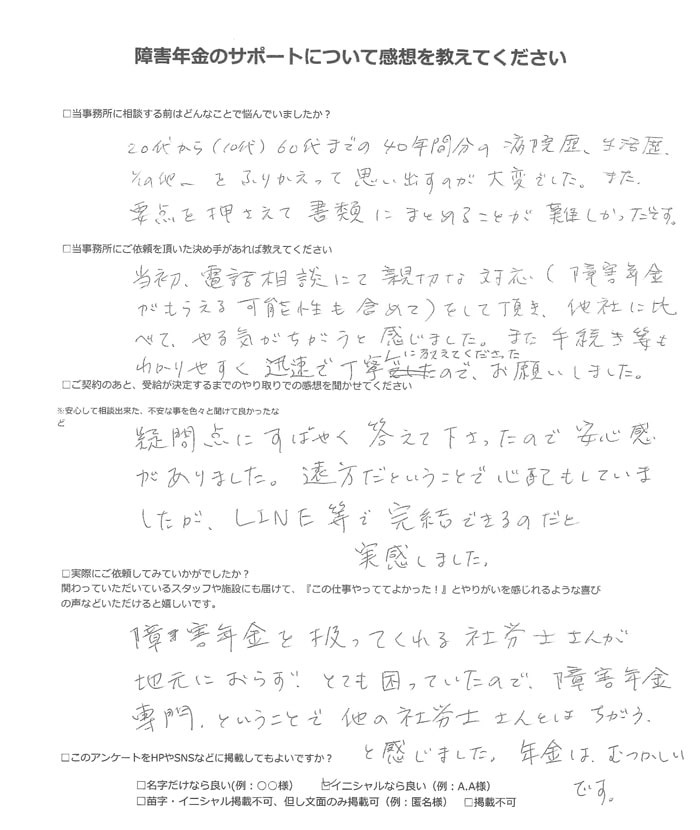 障害年金のサポートについて感想を教えてください
□当事務所に相談する前はどんなことで悩んでいましたか？
20代から(10代)60代までの40年間分の病院歴、生活歴、
その他〜をふりかえって思い出すのが大変でした。また、
要点を押さえて書類にまとめることが難しかったです。
□当事務所にご依頼を頂いた決め手があれば教えてください
当初、電話相談にて親切な対応(障害年金
がもらえる可能性も含めて)をして頂き、他社に比
べて、やる気がちがうと感じました。また手続き等も
わかりやすく迅速で丁寧に教えてくださったので、お願いしました。
□ご契約のあと、受給が決定するまでのやり取りでの感想を聞かせてください
※安心して相談出来た、不安な事を色々と聞けて良かったな
ど
疑問点にすばやく答えて下さったので安心感
がありました。遠方だということで心配もしていま
したが、LINE等で完結できるのだと
実感しました。
□実際にご依頼してみていかがでしたか？
関わっていただいているスタッフや施設にも届けて、『この仕事やっててよかった！』とやりがいを感じれるような喜び
の声などいただけると嬉しいです。
障害年金を扱ってくれる社労士さんが
地元におらず、とても困っていたので、障害年金
専門、ということで他の社労士さんとはちがう、
と感じました。年金は、むつかしい
です。
□このアンケートをHPやSNSなどに掲載してもよいですか？
□名字だけなら良い(例：○○様) ☑イニシャルなら良い（例：A.A様）
□苗字・イニシャル掲載不可、但し文面のみ掲載可（例：匿名様） □掲載不可